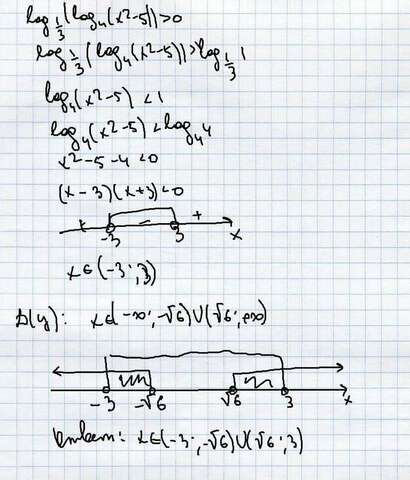 log_{1/3}(log₄(x²-5))>0
log_{1/3}(log₄(x²-5))>log_{1/3} 1
log₄(x²-5)<1
log₄(x²-5)<log₄4
x²-5-4<0
(x-3)(x+3)<0
+ - +
-3 3 x
x∈(-3;3)
D(y): x∈(-∞;-√6)∪(√6;+∞)
-3 -√6 √6 3 x
Ответ: x∈(-3;-√6)∪(√6;3)